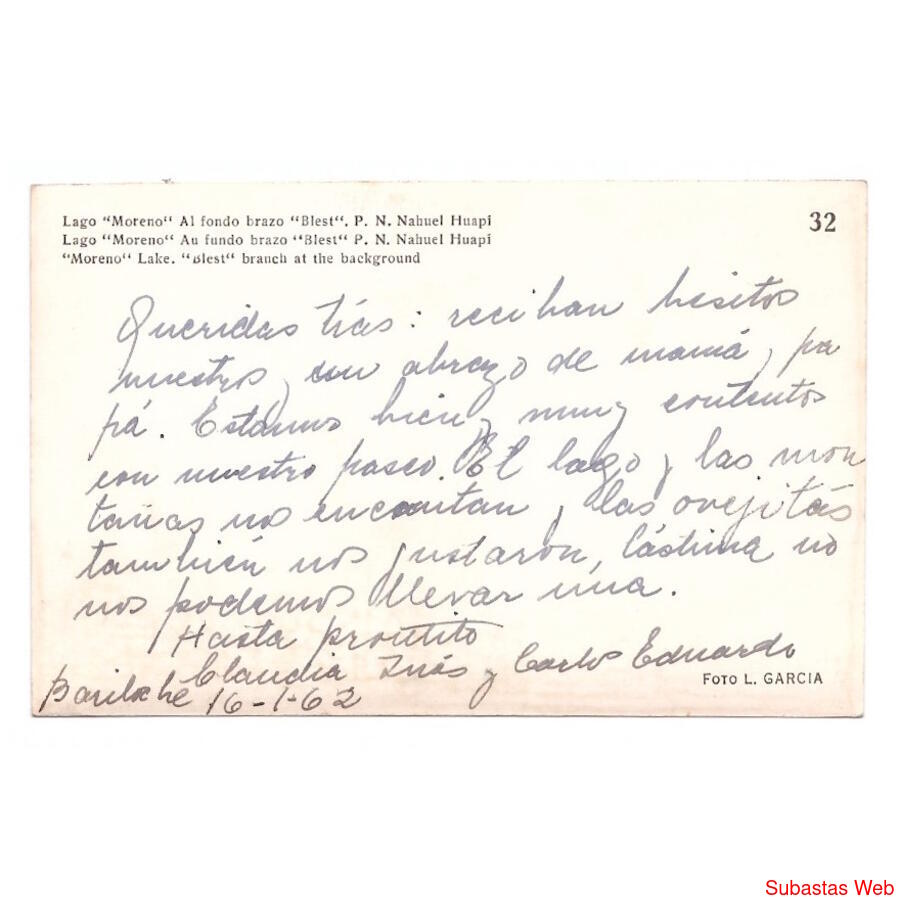 Lago “Moreno“ Al fondo brazo “Blest“. P. N. Nahuel Huapí
Lago “Moreno“ Au fundo brazo “Blest“ P. N. Nahuel Huapí
“Moreno“ Lake. “Blest“ branch at the background
32
Queridas tías: reciban besitos
nuestros, un abrazo de mamá y pa
pá. Estamos bien y muy contentos
con nuestro paseo. El lago y las mon
tañas nos encantan, las ovejitas
también nos gustaron, lástima no
nos podemos llevar una.
Hasta prontito
Claudia Inés y Carlos Eduardo
FOTO L. GARCIA
Bariloche 16-1-62
Subastas Web